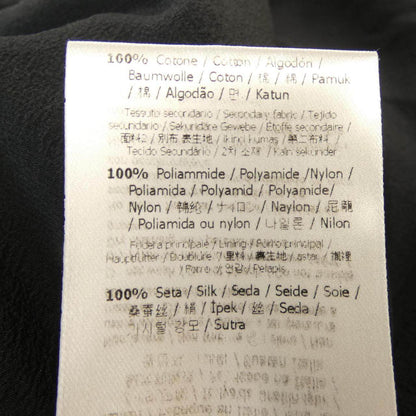 100% Cotone / Cotton / Algodón /
Baumwolle / Coton / 棉 / 棉 / Pamuk
/ 棉 / Algodão / 면 / Katun
Tessuto secondario / Secondary fabric / Tejido
secundario / Sekundäre Gewebe / Étoffe secondaire /
面料2 / 別布 裏生地 / İkinci kumaş / 第二布料 /
Tecido Secundário / 2차 소재 / Kain sekunder
100% Poliammide / Polyamide /Nylon /
Poliamida / Polyamid / Polyamide/
Nylon / 锦纶 / ナイロン / Naylon / 尼龍
/ Poliamida ou nylon / 나일론 / Nilon
Fodera principale / Lining / Forro principal /
Hauptfutter / Doublure / 里料 / 裏生地 / astar /
Forro / 안감 / Pelapis
100% Seta / Silk / Seda / Seide / Soie /
桑蚕丝 / 絹 / İpek / 丝 / Seda /
/ Sutra